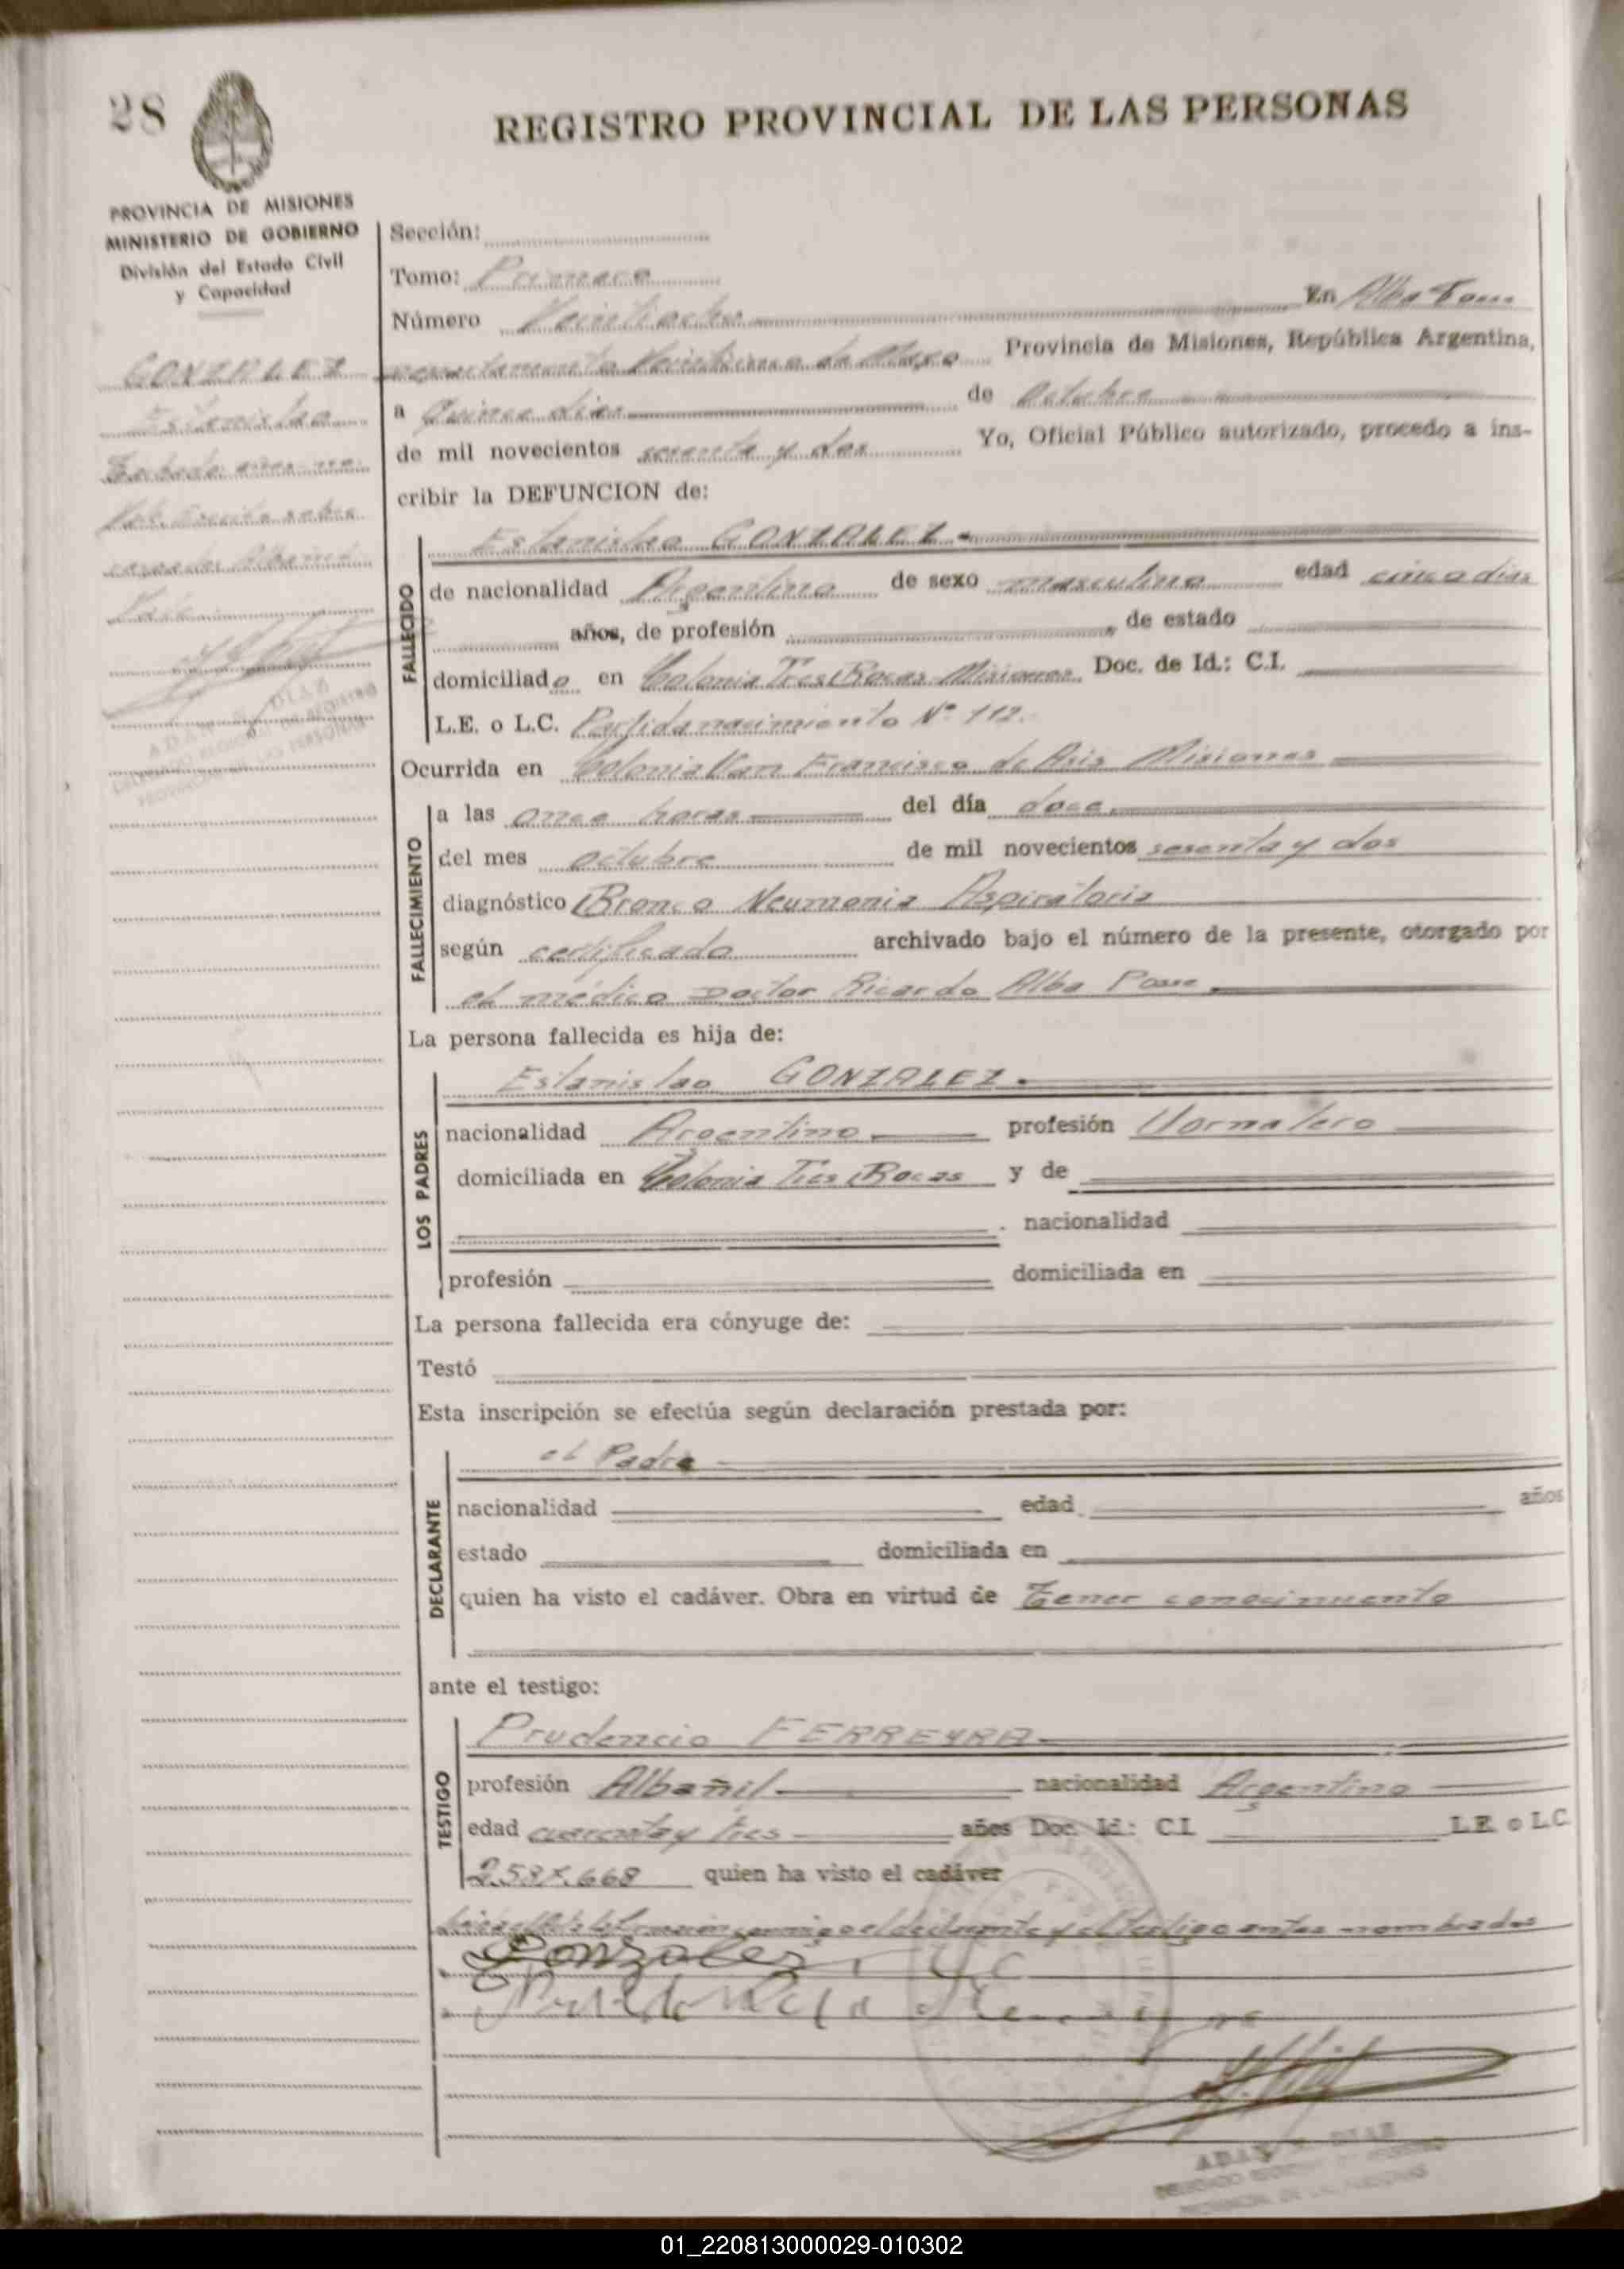 28
REGISTRO PROVINCIAL DE LAS PERSONAS
PROVINCIA DE MISIONES
MINISTERIO DE GOBIERNO
División del Estado Civil
y Capacidad
GONZALEZ
Estanislao
Testado: años = no
Vale
Sección:
Tomo: Primero
Número Veintiocho En Alba Posse
Departamento Veinticinco de Mayo Provincia de Misiones, República Argentina,
a Quince dias de Octubre
de mil novecientos sesenta y dos Yo, Oficial Público autorizado, procedo a ins-
cribir la DEFUNCION de:
Estanislao GONZALEZ
FALLECIDO
de nacionalidad Argentino de sexo masculino edad cinco dias
años, de profesión de estado
domiciliado en Colonia Tres Bocas Misiones Doc. de Id.: C.I.
L.E. o L.C. Partida nacimiento Nº 112.
Ocurrida en Colonia San Francisco de Asis Misiones
FALLECIMIENTO
a las once horas del día doce
del mes octubre de mil novecientos sesenta y dos
diagnóstico Bronco Neumonia Aspiratoria
según certificado archivado bajo el número de la presente, otorgado por
el médico Doctor Ricardo Alba Posse
La persona fallecida es hija de:
LOS PADRES
Estanislao GONZALEZ
nacionalidad Argentino profesión Jornalero
domiciliada en Colonia Tres Bocas y de
nacionalidad
profesión domiciliada en
La persona fallecida era cónyuge de:
Testó
Esta inscripción se efectúa según declaración prestada por:
DECLARANTE
el Padre
nacionalidad edad años
estado domiciliada en
quien ha visto el cadáver. Obra en virtud de Tener conocimiento
ante el testigo:
TESTIGO
Prudencio FERREYRA
profesión Albañil nacionalidad Argentino
edad cuarenta y tres años Doc. Id.: C.I. L.E. o L.C.
quien ha visto el cadáver
conmigo el declarante y el testigo antes nombrados
Gonzalez
ADAN DIAZ
01_220813000029-010302